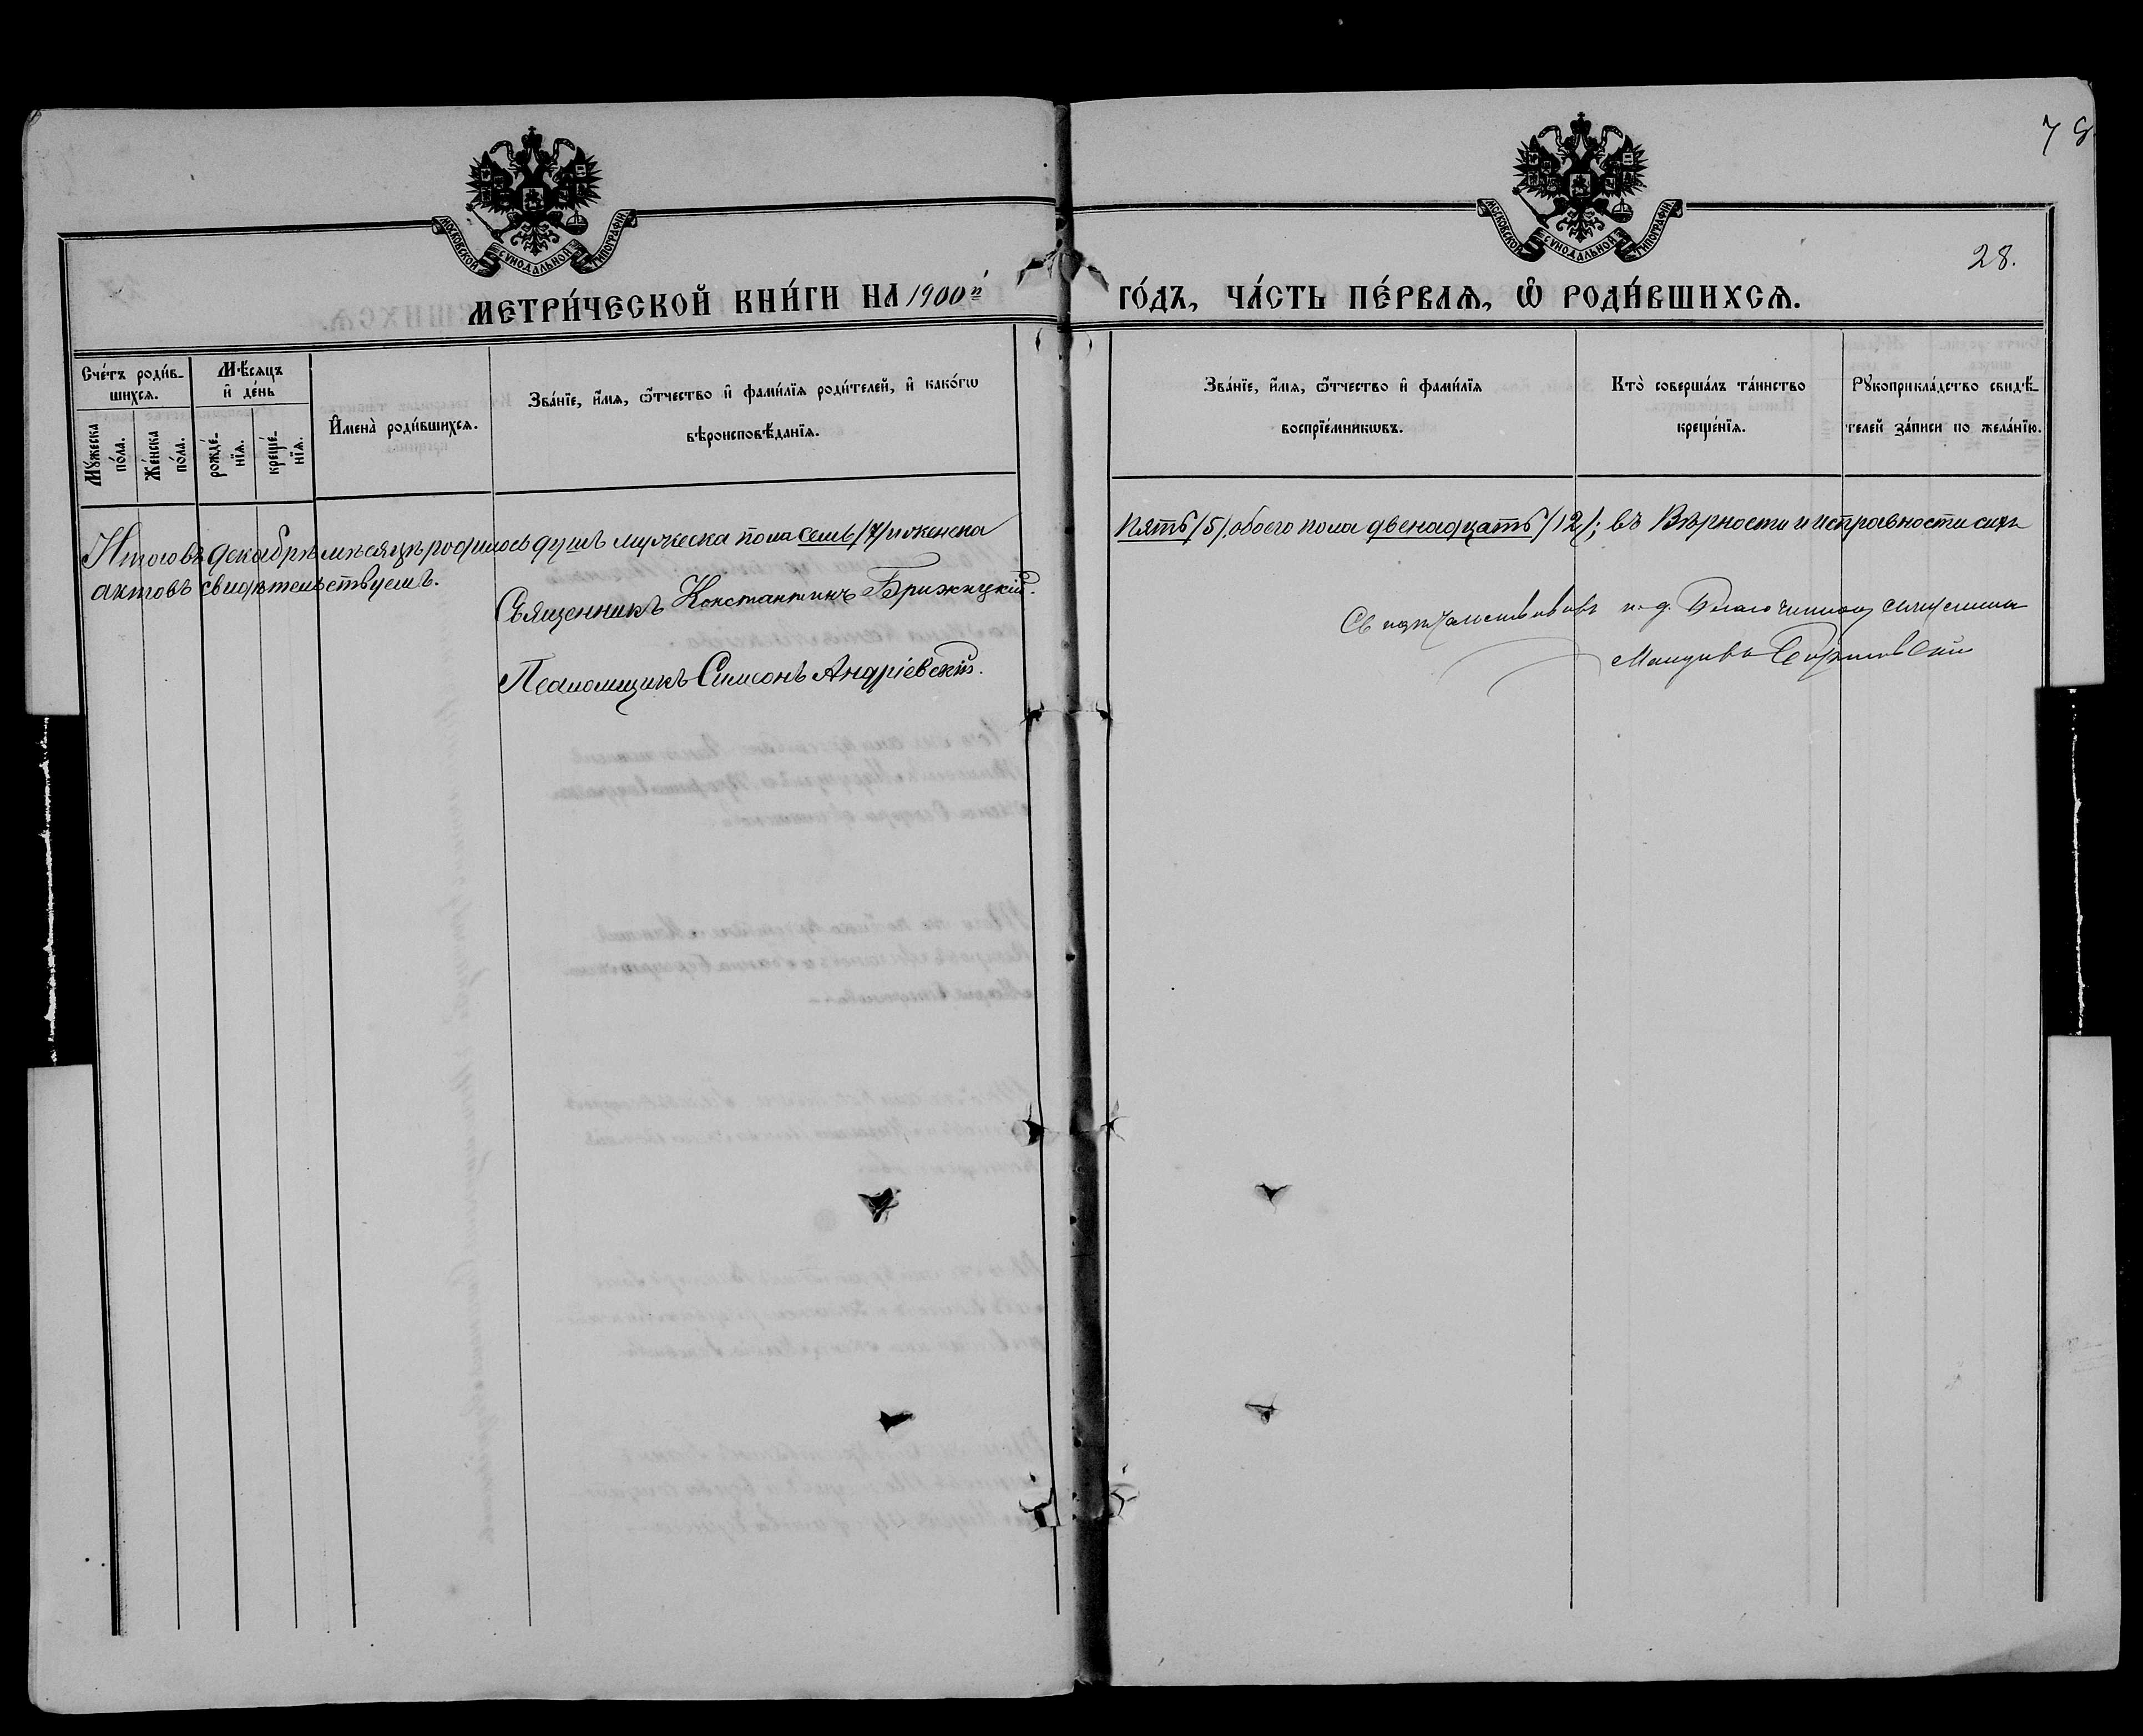 78
МОСКОВСКОЙ СѴНОДАЛЬНОЙ ТИПОГРАФІИ
МОСКОВСКОЙ СѴНОДАЛЬНОЙ ТИПОГРАФІИ
28.
МЕТРИ́ЧЕСКОЙ КНИ́ГИ НА 1900й ГО́ДЪ, ЧА́СТЬ ПЕ́РВАѦ, Ѽ РОДИ́ВШИХСѦ.
Сче́тъ роди́в-
шихсѧ.
Мꙋ́жеска по́ла.
Же́нска по́ла.
Мѣ́сѧцъ и҆ де́нь
рожде́-нїѧ.
креще́-нїѧ.
И҆мена̀ роди́вшихсѧ.
Зва́нїе, и҆́мѧ, ѻ҆́тчество и҆ фами́лїѧ роди́телей, и҆ како́гѡ
вѣроисповѣ́данїѧ.
Зва́нїе, и҆́мѧ, ѻ҆́тчество и҆ фами́лїѧ
воспрїе́мникѡвъ.
Кто̀ соверша́лъ та́инство
креще́нїѧ.
Рꙋкоприкла́дство свидѣ́-
телей за́писи по жела́нїю.
Итого въ декабрѣ мѣсяцѣ родилось душъ мужеска пола семь /7/ и женска пять /5/, обоего пола двенадцать /12/; въ вѣрности и исправности сихъ
актовъ свидѣтельствуемъ.
Священникъ Константинъ Брижицкій.
Псаломщикъ Симеонъ Андріевскій.
Свидѣтельствовалъ и. д. Благочиннаго священникъ